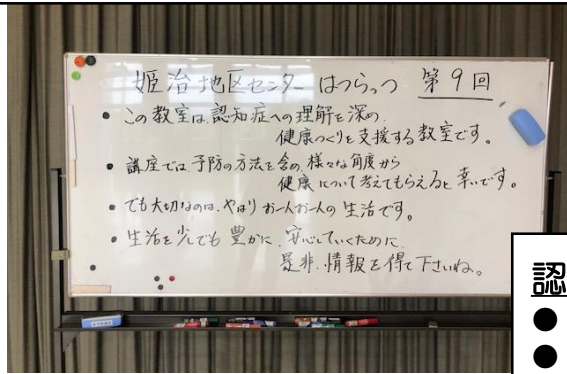 姫治地区センター はつらつ 第9回
• この教室は、認知症への理解を深め、
健康づくりを支援する教室です。
• 講座では、予防の方法を含め、様々な角度から
健康について考えてもらえると幸いです。
• でも大切なのは、やはりお一人お一人の生活です。
• 生活を少しでも豊かに、安心していくために、
是非、情報を得て下さいね。
認
●
●